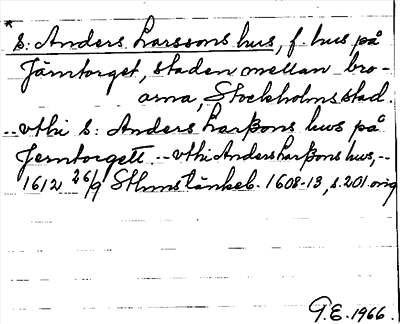 * s: Anders Larssons hus, f. hus på
Järntorget, staden mellan bro-
arna, Stockholms stad.
-- vthi s: Anders Larßons huus på
Jerntorgett -- vthi Anders Larßons hws, --
1612 26/9 Sthms tänkeb. 1608-13, s. 201. orig
G.E. 1966.